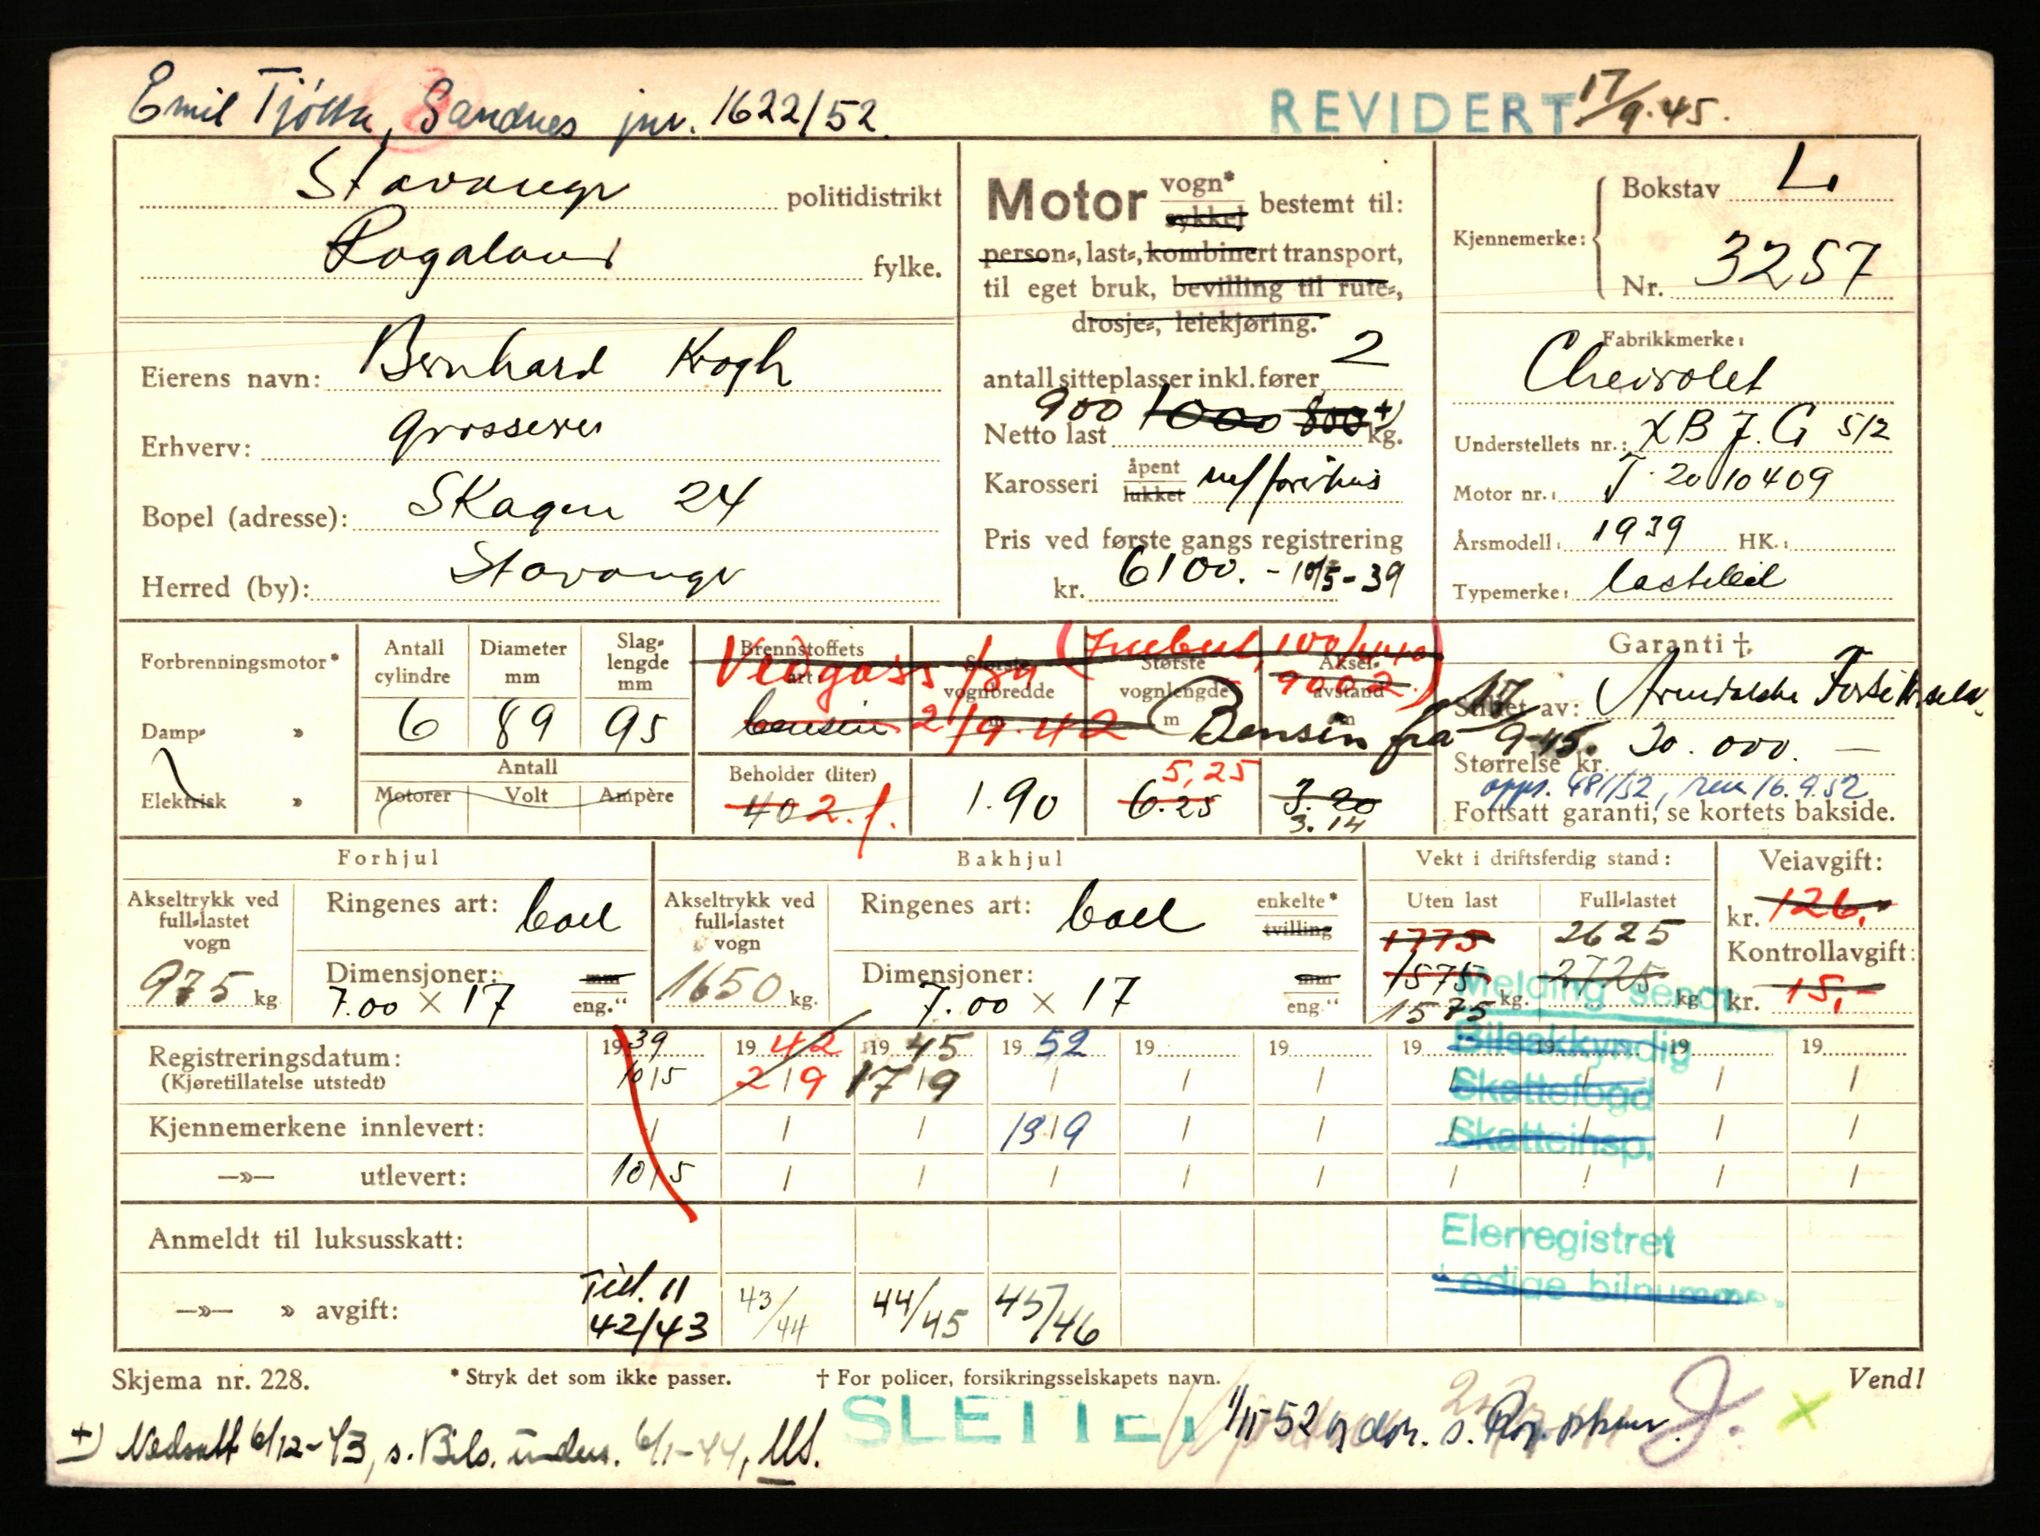 Emil Tjøtta, Sandnes jnr. 1622/52.
REVIDERT 17/9.45.
Stavanger politidistrikt
Rogaland fylke.
Eierens navn: Bernhard Krogh
Erhverv: grosserer
Bopel (adresse): Skagen 24
Herred (by): Stavanger
Motor vogn* sykkel bestemt til:
person-, last-, kombinert transport,
til eget bruk, bevilling til rute-,
drosje-, leiekjøring.
antall sitteplasser inkl. fører 2
Netto last 900 1000 800 +) kg.
Karosseri åpent lukket m/førerhus
Pris ved første gangs registrering
kr. 6100.- 10/5-39
Kjennemerke: Bokstav L.
Nr. 3257
Fabrikkmerke:
Chevrolet
Understellets nr.: XB J. G 512
Motor nr.: J. 2010409
Årsmodell: 1939 HK.:
Typemerke: lastebil
Forbrenningsmotor*
Damp- »
Elektrisk »
Antall cylindre 6
Diameter mm 89
Slag-lengde mm 95
Antall
Motorer Volt Ampère
Brennstoffets art bensin
Vedgass fra 2/9.42
Største vognbredde m 1.90
Største vognlengde m 6.25 5,25
Aksel-avstand m 3.20 3.14
Bensin fra 17/9-45.
Beholder (liter) 40 2.f.
Garanti †.
Stillet av: Arendalske Forsikr.selsk.
Størrelse kr. 20.000.—
opps. 481/52, 16.9.52
Fortsatt garanti, se kortets bakside.
Forhjul
Akseltrykk ved full-lastet vogn 975 kg.
Ringenes art: ball
Dimensjoner: 7.00 × 17 mm eng."
Bakhjul
Akseltrykk ved full-lastet vogn 1650 kg.
Ringenes art: ball enkelte* tvilling
Dimensjoner: 7.00 × 17 mm eng."
Vekt i driftsferdig stand:
Uten last 1775 1575 1575 kg.
Full-lastet 2625 2725 kg
Veiavgift:
kr. 126.-
Kontrollavgift:
kr. 15,-
Melding sendt
Bilsakkyndig
Skattefogd
Skatteinsp.
Eierregistret
Ledige bilnummer.
Registreringsdatum: 1939 1942 1945 1952 19 19 19 19 19 19
(Kjøretillatelse utstedt) 10/5 2/9 17/9 / / / / / / /
Kjennemerkene innlevert: / / / 19/9 / / / / / /
—»— utlevert: 10/5 / / / / / / / / /
Anmeldt til luksusskatt:
—»— » avgift: Til. 11 42/43 43/44 44/45 45/46
Skjema nr. 228.
* Stryk det som ikke passer.
† For policer, forsikringsselskapets navn.
Vend!
SLETTET 1/11-52
+) Nedsatt 6/12-43, s. Bils. 6/1-44,